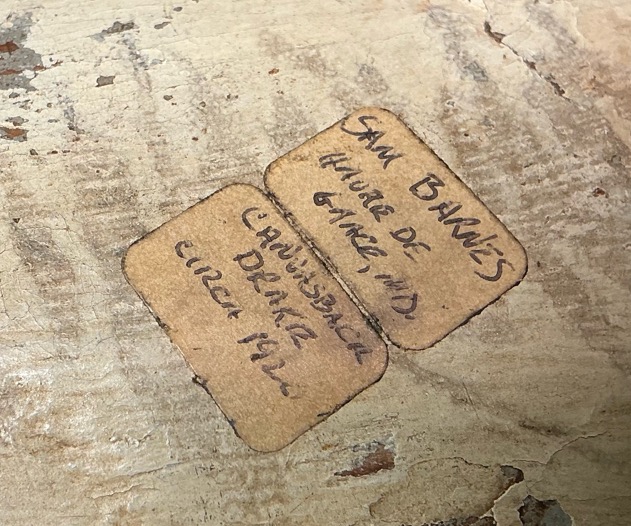 SAM BARNES
HAVRE DE
GRACE, MD.
CANVASBACK
DRAKE
CIRCA 1920